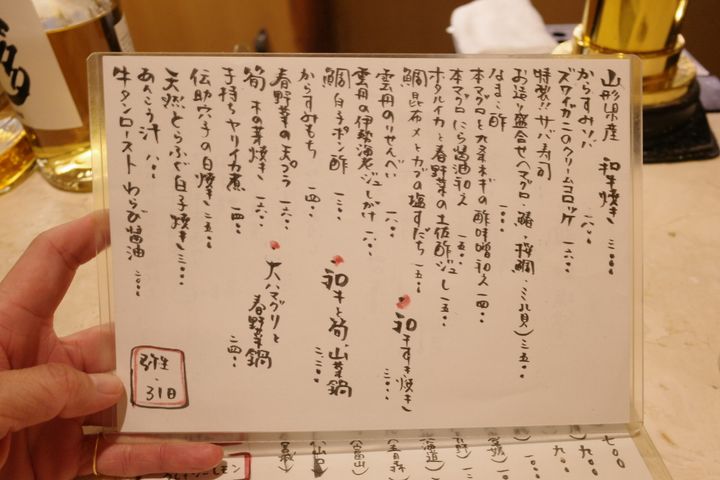 山形県産 和牛焼き 三〇〇〇
からすみソバ 一八〇〇
ズワイカニのクリームコロッケ 一六〇〇
特製!!サバ寿司
お造り盛合せ(マグロ・鰆・桜鯛・ミル貝) 三五〇〇
なまこ酢 一〇〇〇
本マグロと九条ネギの酢味噌和え 一四〇〇
本マグロにら醤油和え 一五〇〇
ホタルイカと春野菜の土佐酢ジュレ 一五〇〇
鯛昆布〆とカブの塩すだち 一五〇〇
和牛すき焼き 三〇〇〇
雲丹のりせんべい 一八〇〇
雲丹の伊勢海老ジュレがけ 一八〇〇
鯛白子ポン酢 一三〇〇
和牛と筍、山菜鍋 三二〇〇
からすみもち 一四〇〇
春野菜の天プラ 一六〇〇
大ハマグリと春野菜鍋 二四〇〇
筍 木の芽焼き 一六〇〇
子持ちヤリイカ煮 一四〇〇
伝助穴子の白焼き 二五〇〇
天然とらふぐ白子焼き 三〇〇〇
あんこう汁 八〇〇
牛タンロースト わらび醤油 二〇〇〇
弥生・31日
七〇〇
九〇〇
九〇〇
(山口)
(富山)
(青森)
(北海道)
(愛媛)
レモン